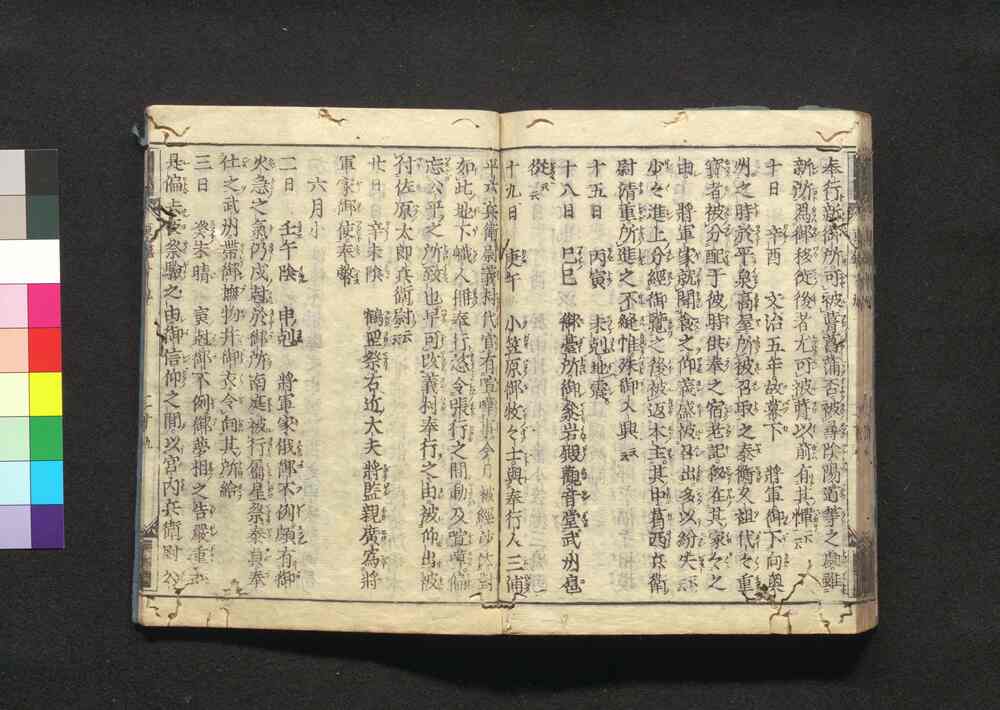 奉行敟御所可被葺菖蒲否被尋陰陽道等之處雖
新所忌御移徙後者尤可被葺以前有其憚云云
十日　辛酉　文治五年故幕下　將軍御下向奥
州之時於平泉高屋所被召取之泰衡父祖代々重
寶者被分配于彼時供奉之宿老記録在其家々之
由　將軍家就聞食之仰義盛被召出多以紛失云云
少々進上分經御覽之後被返本主其中葛西兵衛
尉清重所進之不絶惟殊御入興云云
十五日　丙寅　未剋地震
十八日　己巳　御臺所御參岩殿觀音堂武州已
從云云
十九日　庚午　小笠原御牧々士與奉行人三浦
平六兵衛尉義村代官有喧嘩事今日被經沙汰
如此地下職人㒒奉行恣令張行之間動及喧嘩偏
忘公平之所致也早可改義村奉行之由被仰出被
付佐原太郎兵衛尉云云
廿日　辛未陰　鶴罡祭右近大夫將監親廣爲將
軍家御使奉幣
六月小
二日　壬午陰　申剋　將軍家俄御不例頗有御
火急之氣仍戍剋於御所南庭被行屬星祭泰貞奉
仕之武州帶御厩物并御衣令向其所給
三日　癸未晴　寅剋御不例御夢想之告嚴重云云
是偏去夜祭驗之由御信仰之間以宮内兵衛尉公